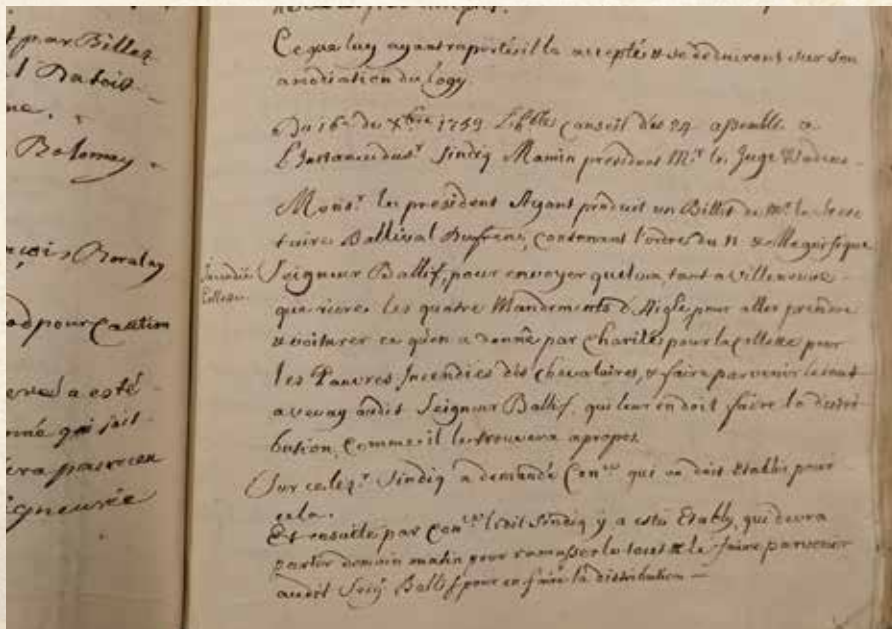 t par Billez
l Dutoit
me.
Bolomay
Noralay
od pour Caution
a esté
pgneurée
Ce que luy ayant raporté il la accepté & se deduiront sur son
amodiation du Logy
Du 16e du Xbre 1759 Le hble Conseil des 24 assemblé a
L'Instance du Sr Sindiq Mamin president Mr le Juge
Monsr le president Ayant produit un Billet de Mr le Secre
taire Ballival Dufrene, contenant l'ordre du N. & Magnifique
Incendie
Collette
Seigneur Ballif, pour envoyer quelcun, tant a Villeneuve
que riere les quatre Mandements d'Aigle pour aller prendre
& voiturer ce qu'on a donné par charité pour la Collette pour
les Pauvres Incendiés des Chevalaires, & faire parvenir le tout
a Vevay audit Seigneur Ballif, qui leur en doit faire la distri
bution, comme il le trouvera apropos.
Sur ce le Sr Sindiq a demandé Conon qui on doit etablir pour
cela.
Et ensuite par Conon ledit Sindiq y a esté Etably, qui devra
partir demain matin pour ramasser le tout & le faire parvenir
audit Seigr Ballif pour en faire la distribution —